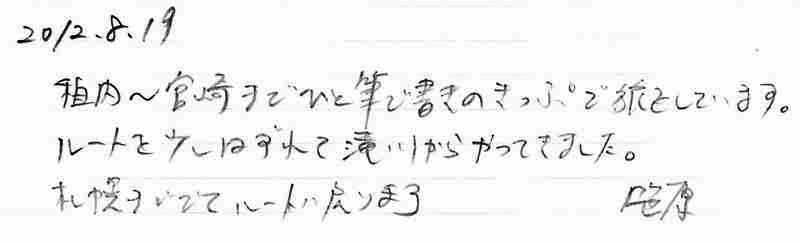 2012.8.19
稚内～宮崎までひと筆で書きのきっぷで旅をしています。
ルートを少しはずれて滝川からやってきました。
札幌まででてルートに戻ります 笹原